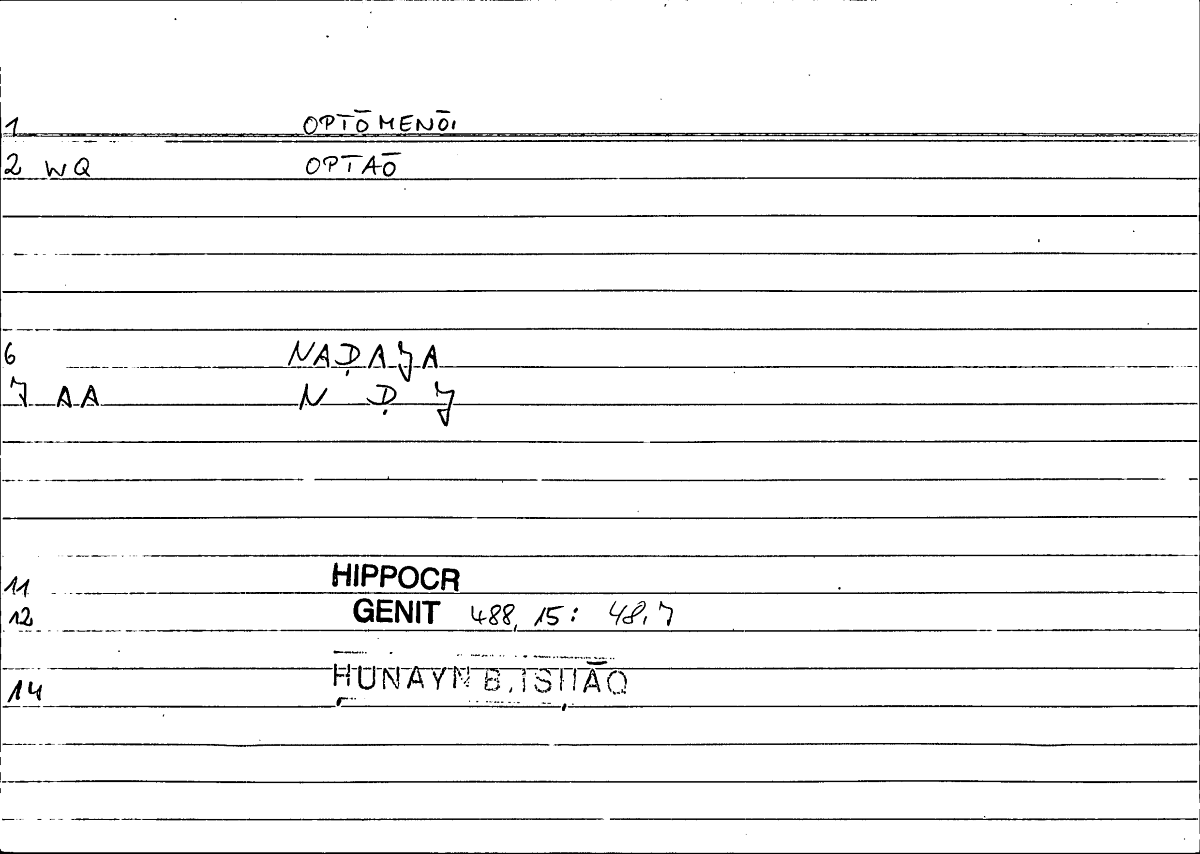 1 OPTŌMENŌI
2 WQ OPTAŌ
6 NAḌAJA
7 AA N Ḍ J
11 HIPPOCR
12 GENIT 488, 15: 48,7
14 ḤUNAYN B. ISḤĀQ